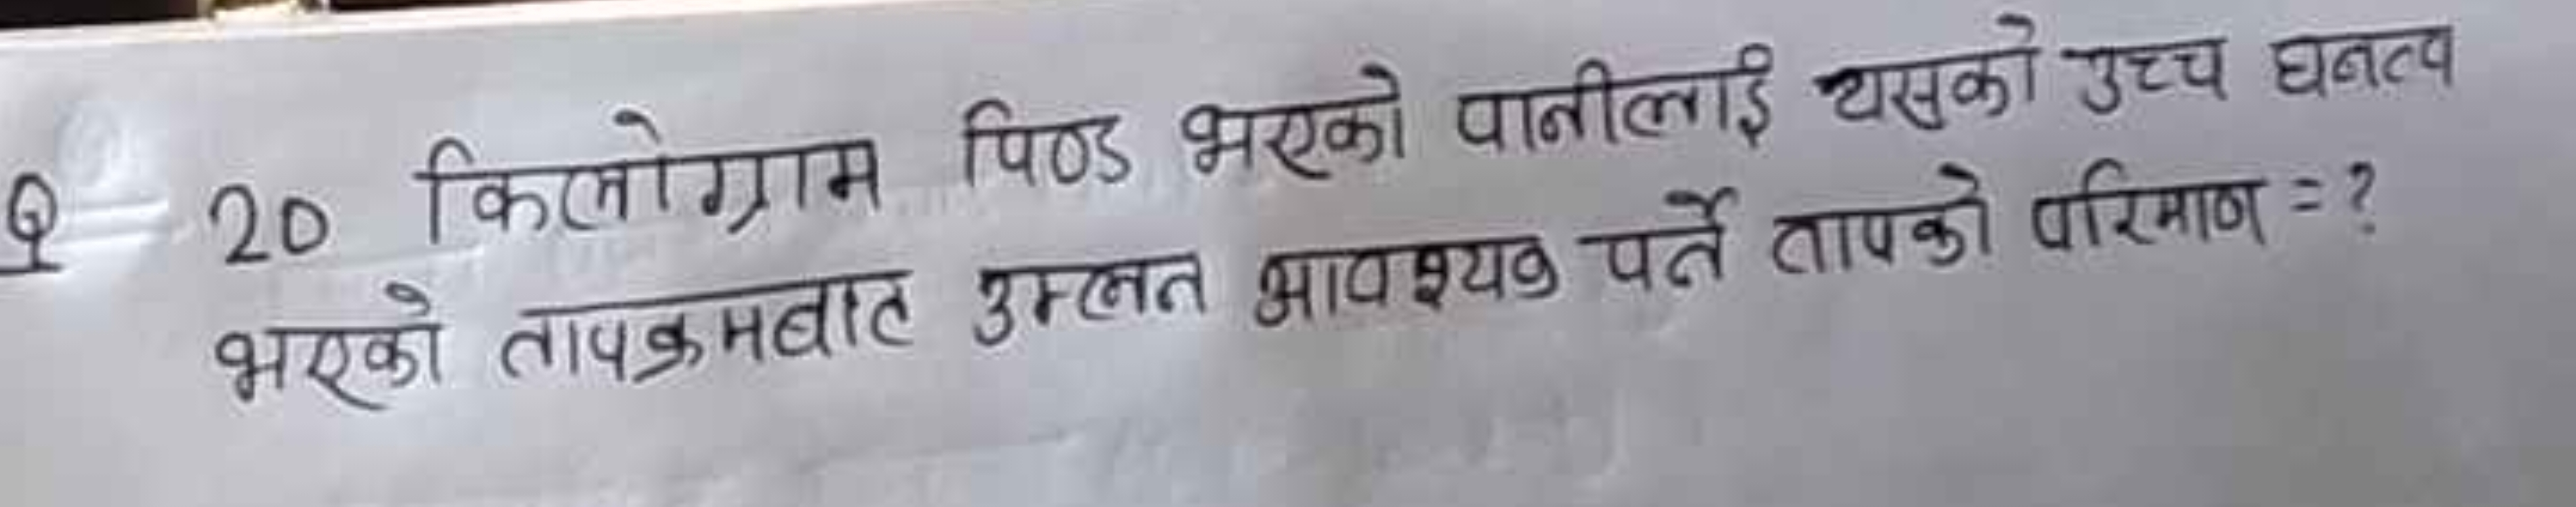 Q 20 किलोग्राम पिण्ड भएको पानीलाई यसको उच्च घनत्व
भएको तापक्रमबाट उम्लन आवश्यक पर्ने तापको परिमाण = ?